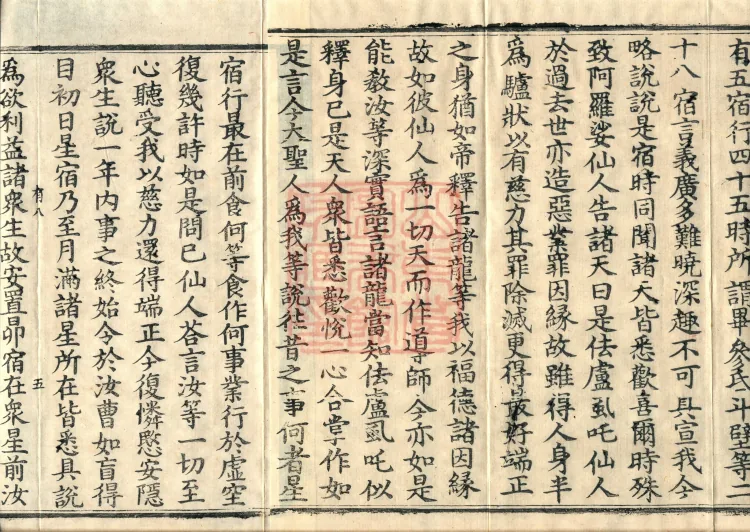 有五宿行四十五時所謂畢參氐斗辟等二
十八宿言義廣多難曉深趣不可具宣我今
略説説是宿時同聞諸天皆悉歡喜爾時殊
致阿羅娑仙人告諸天曰是佉盧虱吒仙人
於過去世亦造惡業罪因緣故雖得人身半
爲驢狀以有慈力其罪除滅更得最好端正
之身猶如帝釋告諸龍等我以福德諸因緣
故如彼仙人爲一切天而作導師今亦如是
能教汝等深實語言諸龍當知佉盧虱吒似
釋身已是天人衆皆悉歡悅一心合掌作如
是言今大聖人爲我等説往昔之事何者星
宿行最在前食何等食作何事業行於虛空
復幾許時如是問已仙人荅言汝等一切至
心聽受我以慈力還得端正今復憐愍安隱
衆生説一年内事之終始令於汝曹如盲得
目初日星宿乃至月滿諸星所在皆悉具説
有八 五
爲欲利益諸衆生故安置昴宿在衆星前汝